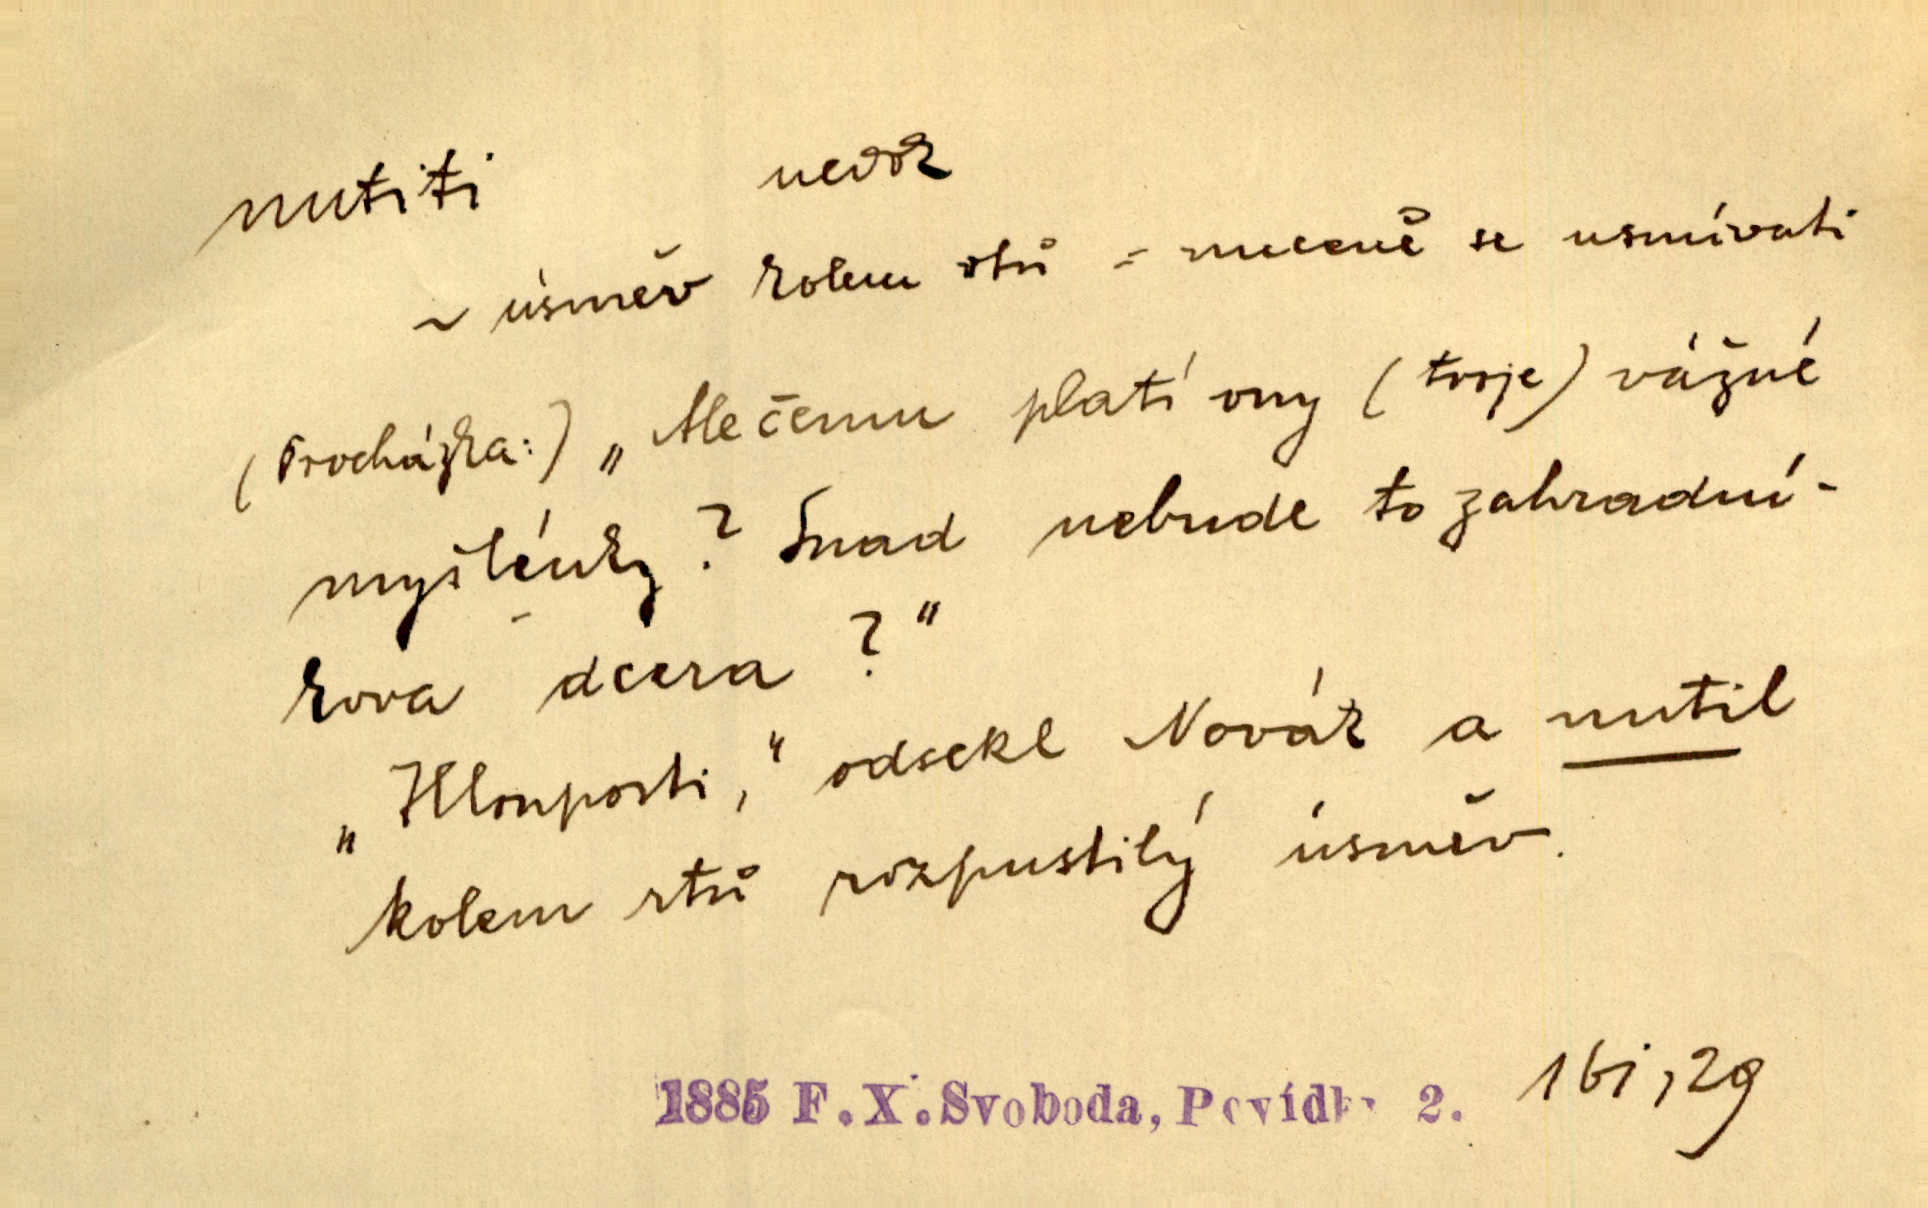 nutiti nedok
~ úsměv kolem rtů = nuceně se usmívati
(Procházka:) „Ale čemu platí ony (tvoje) vážné
myšlénky? Snad nebude to zahradní-
kova dcera?“
„Hlouposti,“ odsekl Novák a nutil
kolem rtů rozpustilý úsměv.
1885 F. X. Svoboda, Povídky 2. 161, 29